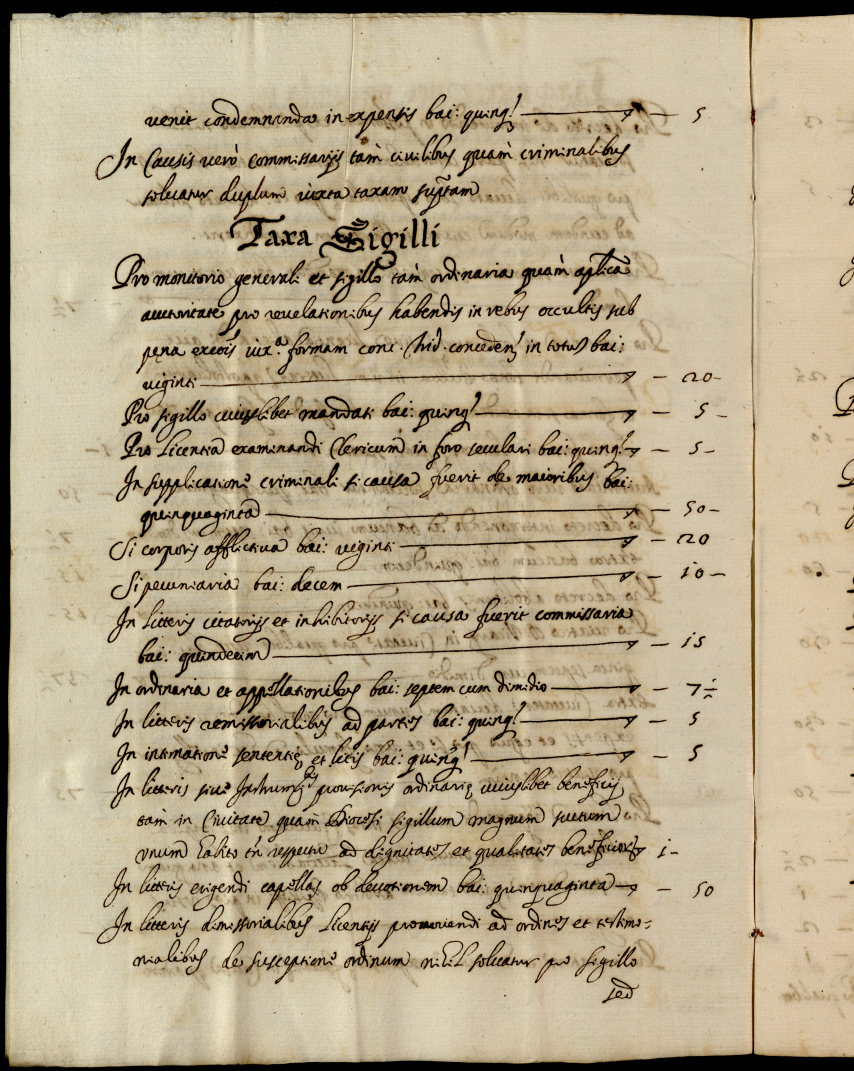 uenit condemnanda in expensis bai: quinq! — 5
In Causis verò commissarijs tàm ciuilibus quàm criminalibus
soluatur duplum iuxta taxam suptam
Taxa Sigilli
Pro monitorio generali et sigillo tàm ordinaria quàm aplica
auctoritate pro reuelationibus habendis in rebus occultis sub
pęna excois iuxª formam conc. Trid. conceden! in totum bai:
uiginti — 20 -
Pro sigillo cuiuslibet mandati bai: quinq! — 5 -
Pro Licentia examinandi Clericum in foro seculari bai: quinq! — 5 -
In supplicatione criminali si causa fuerit de maioribus bai:
quinquaginta — 50 -
Si corporis afflictiua bai: uiginti — 20
Si pecuniaria bai: decem — 10 -
In litteris citatorijs et inhibitorijs si causa fuerit commissaria
bai: quindecim — 15
In ordinaria et appellationibus bai: septem cum dimidio — 7½
In litteris remissorialibus ad partes bai: quinq! — 5
In intimatione sententię et litis bai: quinq! — 5
In litteris siue Instrum prouisionis ordinarię cuiuslibet beneficij
tàm in Ciuitate quàm Diocesi sigillum magnum scutum
vnum habito tn respectu ad dignitates et qualitates beneficiorum 1 -
In litteris erigendi capellas ob deuotionem bai: quinquaginta — 50
In litteris dimissorialibus Licentijs promouendi ad ordines et testimo-
nialibus de susceptione ordinum nihil soluatur pro sigillo
sed